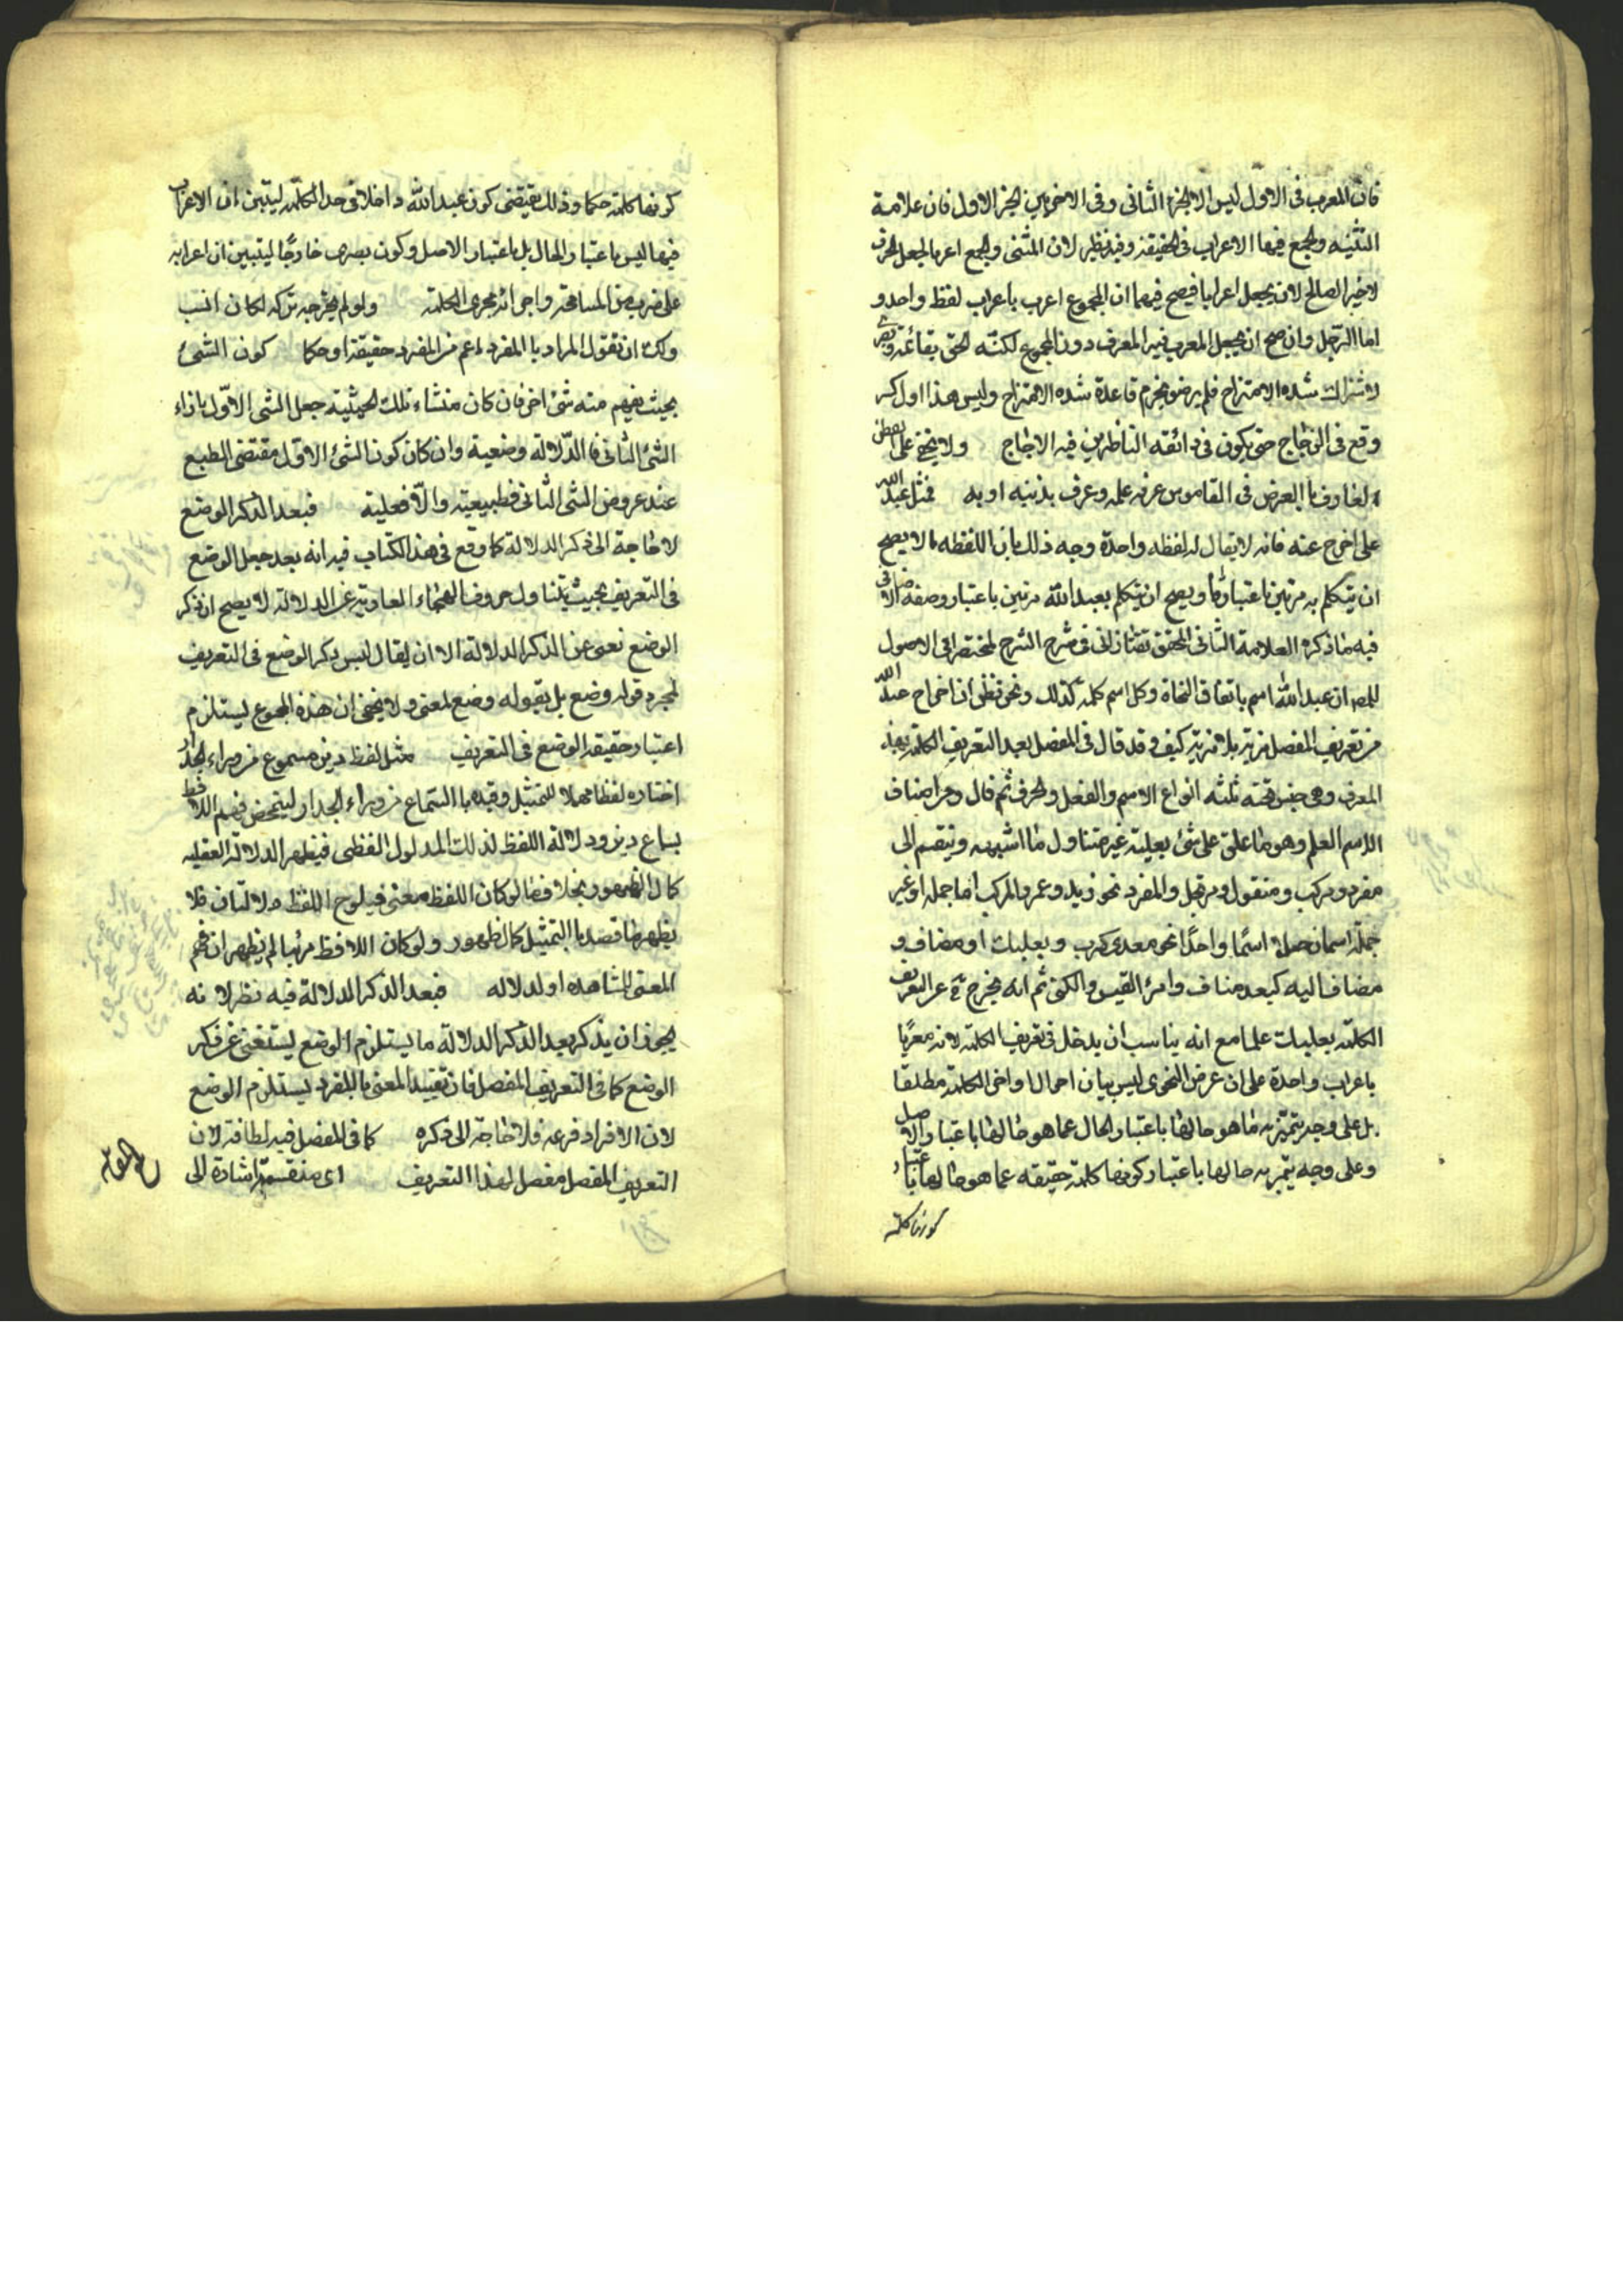 فان المعرب فى الاول ليس الا الجزء الثانى وفى الاخيرين الجزء الاول فان علامة
التثنيه والجمع فيهما الاعراب فى الحقيقة وفيه نظر لان المثنى والجمع اعربا لجعل الحرف
الاخير الصالح لان يجعل اعرابا فيصح فيهما ان المجموع اعرب باعراب لفظ واحد و
اما الرجل وان صح ان يجعل المعرب فيه المعرف دون المجموع لكنه الحق بقائمة وبصرى
لاشتراك شده الامتزاج فلم يرض بخرم قاعدة شده الامتزاج وليس هذا اول كسر
وقع فى الزجاج حتى يكون فى ذائقه الناظرين فيه الاجاج ولا يخفى على الفطن
العارف بالعرض فى القاموس عرفه علمه وعرف بذنبه او به فمثل عبد الله
على اخرج عنه فانه لا يقال له لفظه واحدة وجه ذلك بان اللفظه ما لا يصح
ان يتكلم به مرتين باعتبار ما ويصح ان يتكلم بعبد الله مرتين باعتبار وصفه الاضافى
فيه ما ذكره العلامة الثانى المحقق تفتازانى فى شرح الشرح لمختصر فى الاصول
للمص ان عبد الله اسم باتفاق النحاة وكل اسم كلمه كذلك ونحن نظن ان اخراج عبد الله
من تعريف المفصل فرية بلا مرية كيف وقد قال فى المفصل بعد التعريف الكلمه بهذا
المعرف وهى جنس تحته ثلثه انواع الاسم والفعل والحرف ثم قال ومن اصناف
الاسم العلم وهو ما علق على شئ بعينه غير متناول ما اشبهه وينقسم الى
مفرد ومركب ومنقول ومرتجل والمفرد نحو زيد وعمرو المركب اما جمله او غير
جمله اسمان جعلا اسما واحدا نحو معدى كرب وبعلبك او مضاف و
مضاف اليه كعبد مناف وامرئ القيس والكنى ثم انه يخرج ح عن التعريف
الكلمه بعلبك علما مع انه يناسب ان يدخل فى تعريف الكلمه لانه معربا
باعراب واحدة على ان غرض النحوى ليس بيان احوال اواخر الكلمه مطلقا
بل على وجه يتميز به ما هو حالها باعتبار الحال عما هو حالها باعتبار الاصل
وعلى وجه يتميز به حالها باعتبار كونها كلمه حقيقه عما هو حالها باعتبار
كونها كلمة
كونها كلمة حكما وذلك يقتضى كون عبد الله داخلا فى حد الكلمه ليتبين ان الاعراب
فيها ليس باعتبار الحال بل باعتبار الاصل وكون بصرى خارجا ليتبين ان اعرابه
على ضرب من المسامحة واجرائه مجرى الكلمة ولو لم يخرجه بتركه لكان انسب
ولك ان تقول المراد با المفرد اعم من المفرد حقيقة او حكما كون الشئ
بحيث يفهم منه شئ اخر فان كان منشاء تلك الحيثية جعل الشى الاول بازاء
الشئ الثانى فا الدلاله وضعية وان كان كون الشئ الاول مقتضى الطبع
عند عروض الشى الثانى فطبيعية والا فعقلية فبعد الذكر الوضع
لاحاجة الى ذكر الدلالة كما وقع فى هذا الكتاب فيه انه بعد جعل الوضع
فى التعريف بحيث يتناول حروف الهجاء العارية عن الدلالة لا يصح ان ذكر
الوضع نعنى عن الذكر الدلالة الا ان يقال ليس ذكر الوضع فى التعريف
لمجرد قوله وضع بل بقوله وضع لمعنى ولا يخفى ان هذه المجموع يستلزم
اعتبار حقيقه الوضع فى التعريف مثل لفظ ديز مسموع من وراء الجدار
اختاره لفظا مهملا للتمثيل وقيده با السماع من وراء الجدار ليتمحض فهم اللافظ
بسماع ديز ودلالة اللفظ لذلك المدلول اللفظى فيظهر الدلالة العقليه
كمال الظهور بخلاف ما لو كان اللفظ معنى فيلوح اللفظ دلالتان فلا
يظهر ما قصد با التمثيل كمال ظهور ولو كان اللافظ مرئيا لم يظهر ان فهم
المعنى لمشاهده او لدلاله فبعد الذكر الدلالة فيه نظر لا نه
يجوز ان يذكر بعد الذكر الدلالة ما يستلزم الوضع ليستغنى عن ذكر
الوضع كما فى التعريف المفصل فان تقييد المعنى با للمفرد يستلزم الوضع
لان الافراد فرعه فلا حاجة الى ذكره كما فى المفصل فيه لطافة لان
التعريف المفصل مفصل لهذا التعريف اى منقسمة اشارة الى